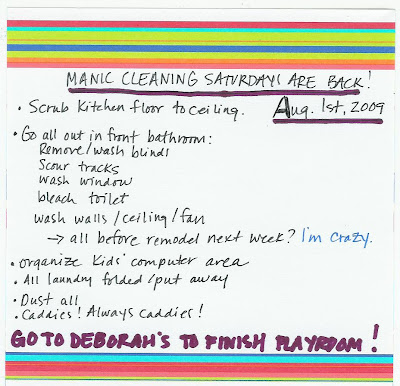 MANIC CLEANING SATURDAYS ARE BACK!
• Scrub Kitchen floor to ceiling. Aug. 1st, 2009
• Go all out in front bathroom:
Remove/wash blinds
Scour tracks
wash window
bleach toilet
wash walls/ceiling/fan
→ all before remodel next week? I'm crazy.
• organize Kids' computer area
• All laundry folded/put away
• Dust all
• Caddies! Always caddies!
GO TO DEBORAH'S TO FINISH PLAYROOM!